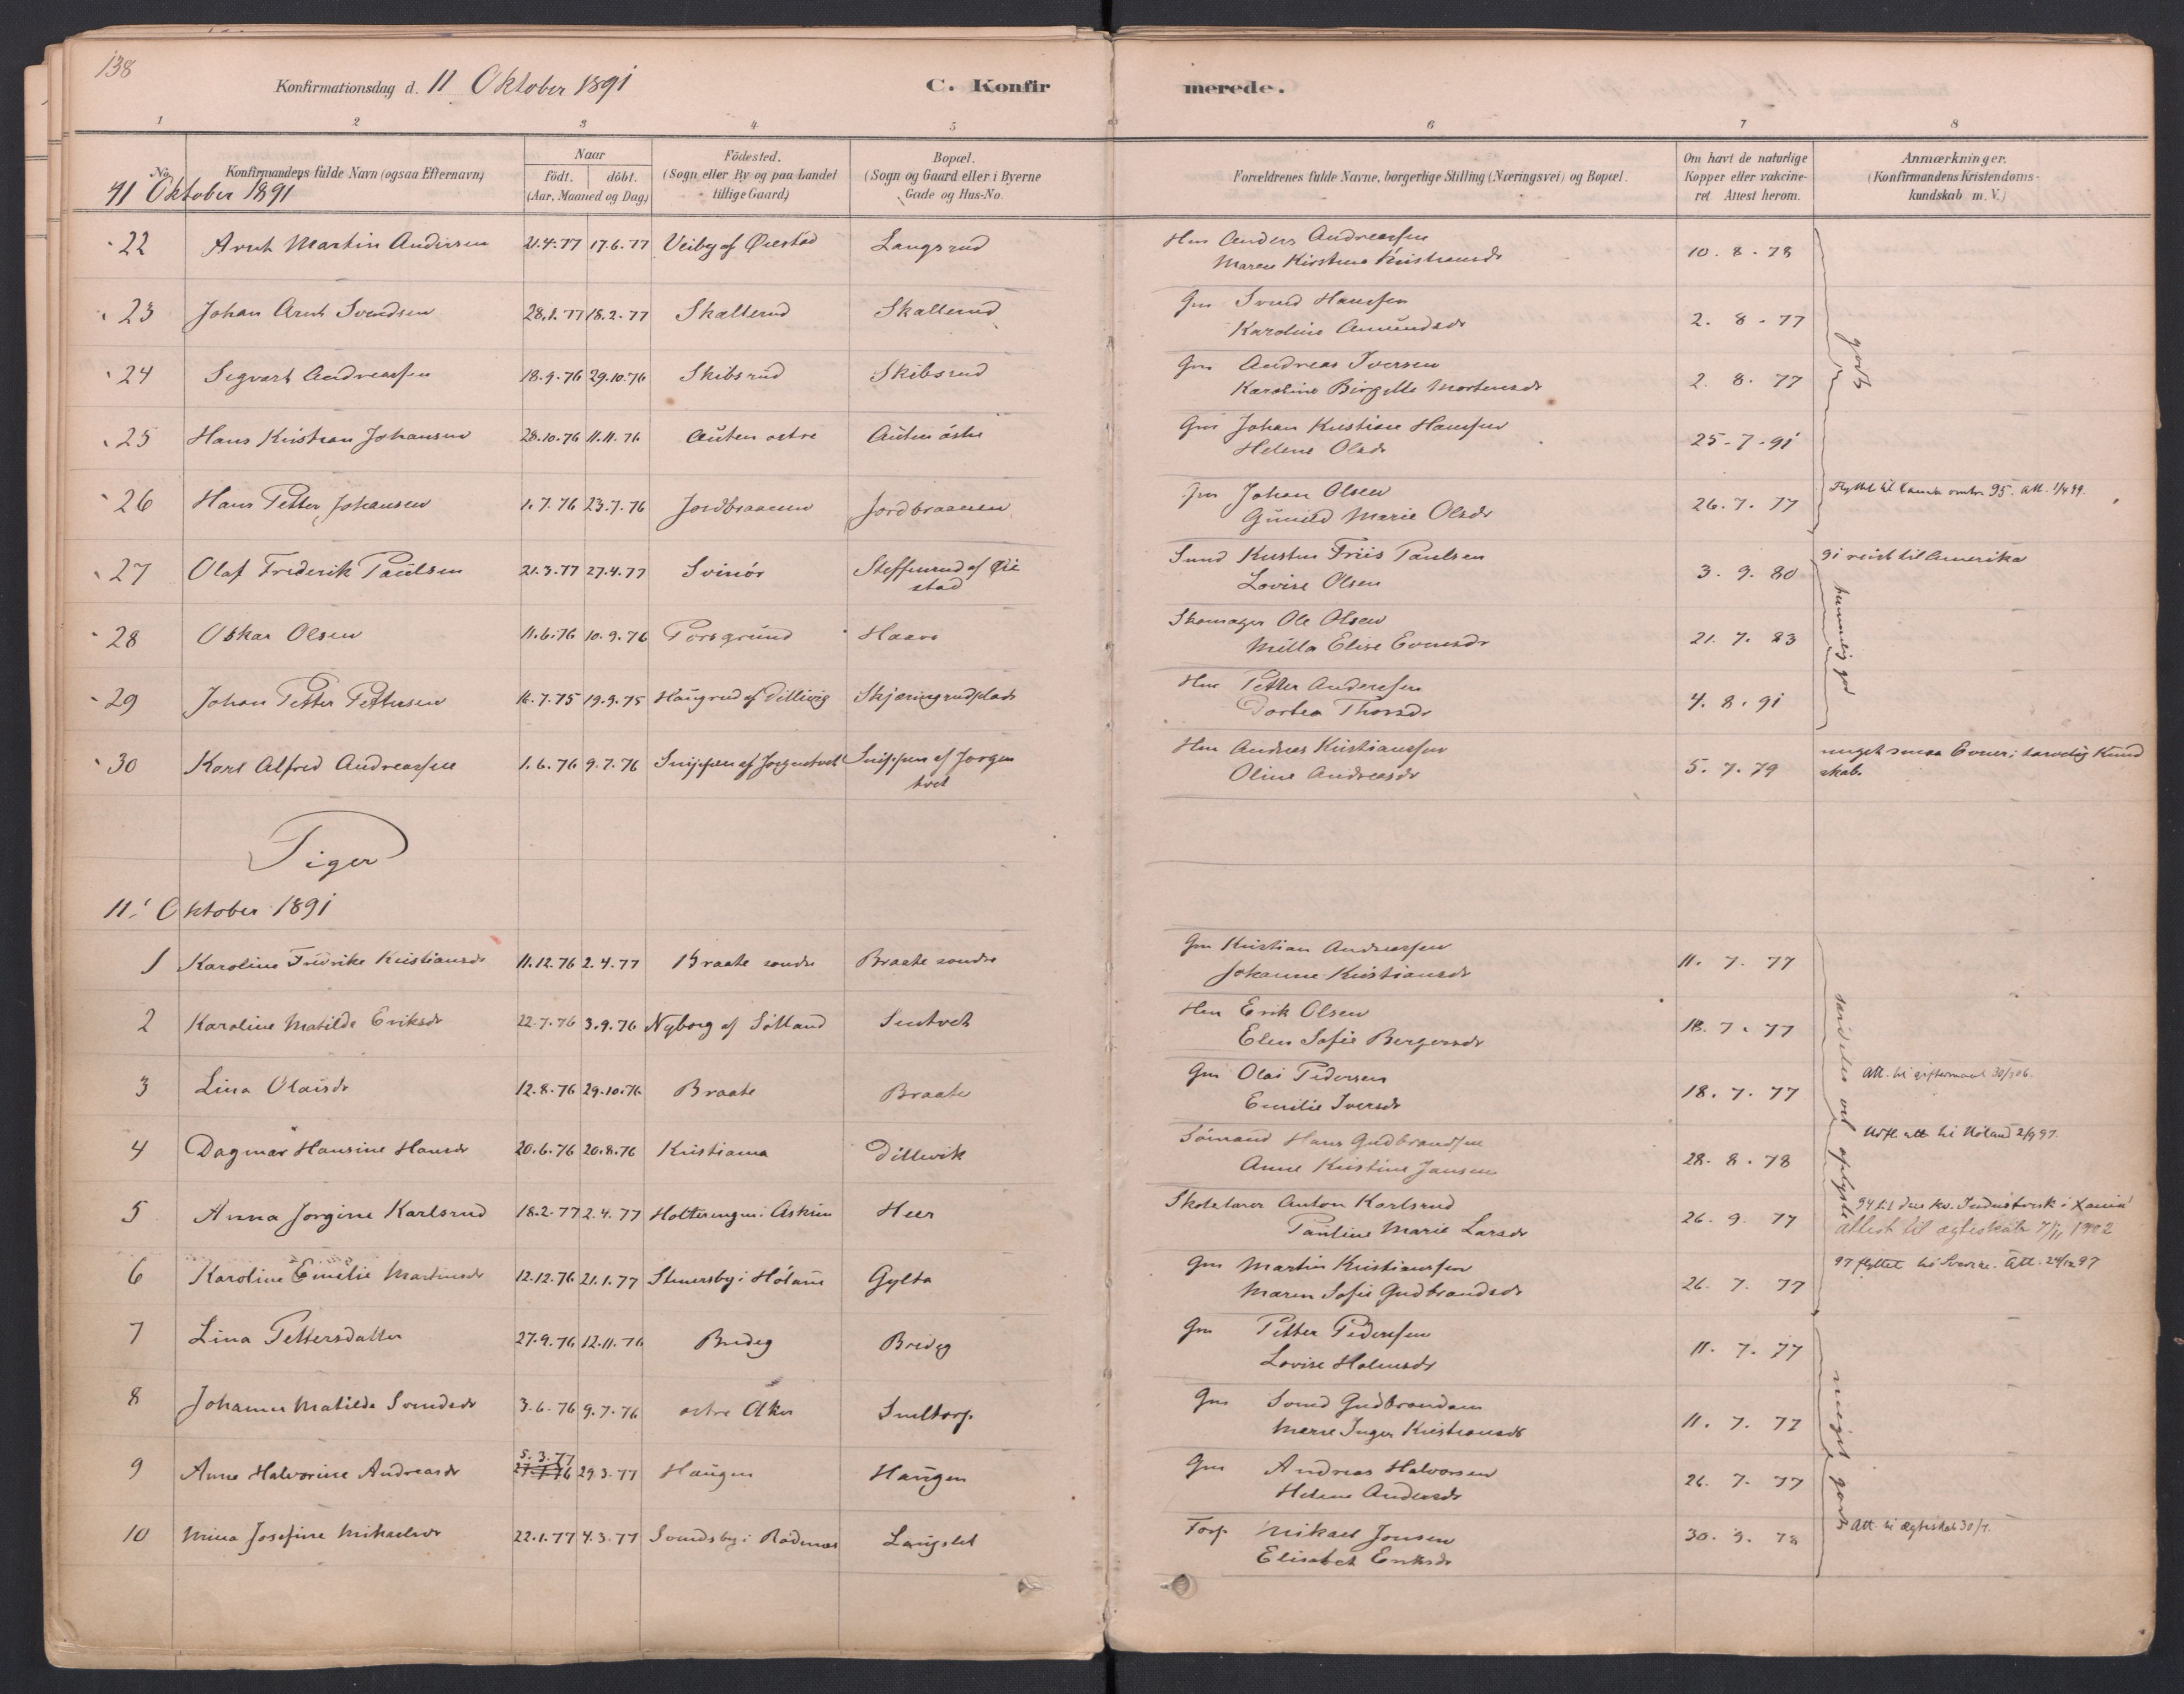 138
Konfirmationsdag d. 11 Oktober 1891
C. Konfirmerede.
1 2 3 4 5 6 7 8
No. Konfirmandens fulde Navn (ogsaa Efternavn) Naar födt. döbt. (Aar, Maaned og Dag) Födested. (Sogn eller By og paa Landet tillige Gaard) Bopæl. (Sogn og Gaard eller i Byerne Gade og Hus-No. Forældrenes fulde Navne, borgerlige Stilling (Næringsvei) og Bopæl. Om havt de naturlige Kopper eller vakcineret Attest herom. Anmærkninger. (Konfirmandens Kristendomskundskab m. V.)
11 Oktober 1891
22 Arnt Martin Andersen 21.4.77 17.6.77 Veiby af Ørestad Langsrud Hm Anders Andreassen
Maren Kirstine Kristiansdr 10.8.78
23 Johan Arnt Svendsen 28.1.77 18.2.77 Skallerud Skallerud Gm Svend Hanssen
Karoline Amundsdr 2.8.77
godt
24 Sigvart Andreassen 18.9.76 29.10.76 Skibsrud Skibsrud Gm Andreas Iversen
Karoline Birgitte Mortensdr 2.8.77
25 Hans Kristian Johansen 28.10.76 11.11.76 Auten östre Auten östre Gm Johan Kristian Hanssen
Helene Olsdr 25.7.91
26 Hans Petter Johansen 1.7.76 23.7.76 Jordbraaenen Jordbraaenen Gm Johan Olsen
Gunild Marie Olsdr 26.7.77
27 Olaf Frederik Paulsen 21.3.77 27.4.77 Svinör Steffensrud af Øiestad Smed Kristen Friis Paulsen
Lovise Olsen 3.9.80 91 reist til Amerika
28 Oskar Olsen 11.6.76 10.9.76 Porsgrund Haave Skomager Ole Olsen
Milla Elise Evensdr 21.7.83
temmelig god
29 Johan Petter Pettersen 16.7.75 19.9.75 Haugrud af Dillivig Skjæringrudplads Hm Petter Anderssen
Dortea Thorsdr 4.8.91
30 Karl Alfred Andreassen 1.6.76 9.7.76 Snippen af Jorgentvet Snippen af Jorgentvet Hm Andreas Kristianssen
Oline Andreasdr 5.7.79 meget smaa Evner; tarvelig Kundskab.
Piger
11. Oktober 1891
1 Karoline Fredrike Kristiansdr 11.12.76 2.4.77 Braate sondre Braate sondre Gm Kristian Andreassen
Johanne Kristiansdr 11.7.77
2 Karoline Matilde Eriksdr 22.7.76 3.9.76 Nyborg af Sötland Smtvet Hm Erik Olsen
Elen Sofie Bergersdr 18.7.77
særdeles vel oplyste
3 Lina Olaisdr 12.8.76 29.10.76 Braate Braate Gm Olai Pedersen
Emilie Iversdr 18.7.77 Att. til giftermaal 30/3 06.
4 Dagmar Hansine Hansdr 20.6.76 20.8.76 Kristiania Dillevik Sömand Hans Gudbrandsen
Anne Kristine Jansen 28.8.78 Udfl. att til Höland 2/9 97.
5 Anna Jorgine Karlsrud 18.2.77 2.4.77 Holterengen i Askim Heer Skolelærer Anton Karlsrud
Pauline Marie Larsdr 26.9.77 94 til den kv. Industrisk. i Xania
attest til ægteskab 7/11 1902
6 Karoline Emilie Martinsdr 12.12.76 21.1.77 Stenersby i Höland Gylta Gm Martin Kristianssen
Maren Sofie Gudbrandsdr 26.7.77 97 flyttet til Sverre. Att. 24/12 97
7 Lina Pettersdatter 27.9.76 12.11.76 Bredeg Bredeg Gm Petter Pederssen
Lovise Holmsdr 11.7.77
8 Johanne Matilde Svendsdr 3.6.76 9.7.76 ostre Aker Smltorp Gm Svend Gudbrandsen
Marie Inger Kristiansdr 11.7.77
meget godt
9 Anne Halvorine Andreasdr 5.3.77 29.3.77 Haugen Haugen Gm Andreas Halvorsen
Helene Andersdr 26.7.77
10 Mina Josefine Mikaelsdr 22.1.77 4.3.77 Svendsby i Rödenæs Langslet Torp. Mikael Jonsen
Elisabet Eriksdr 30.9.78 Att. til Ægteskab 30/7.